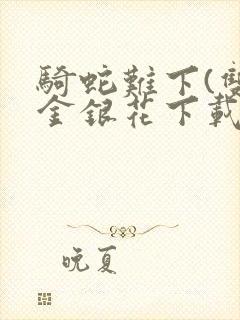 騎蛇難下(雙
金銀花下載
晚夏